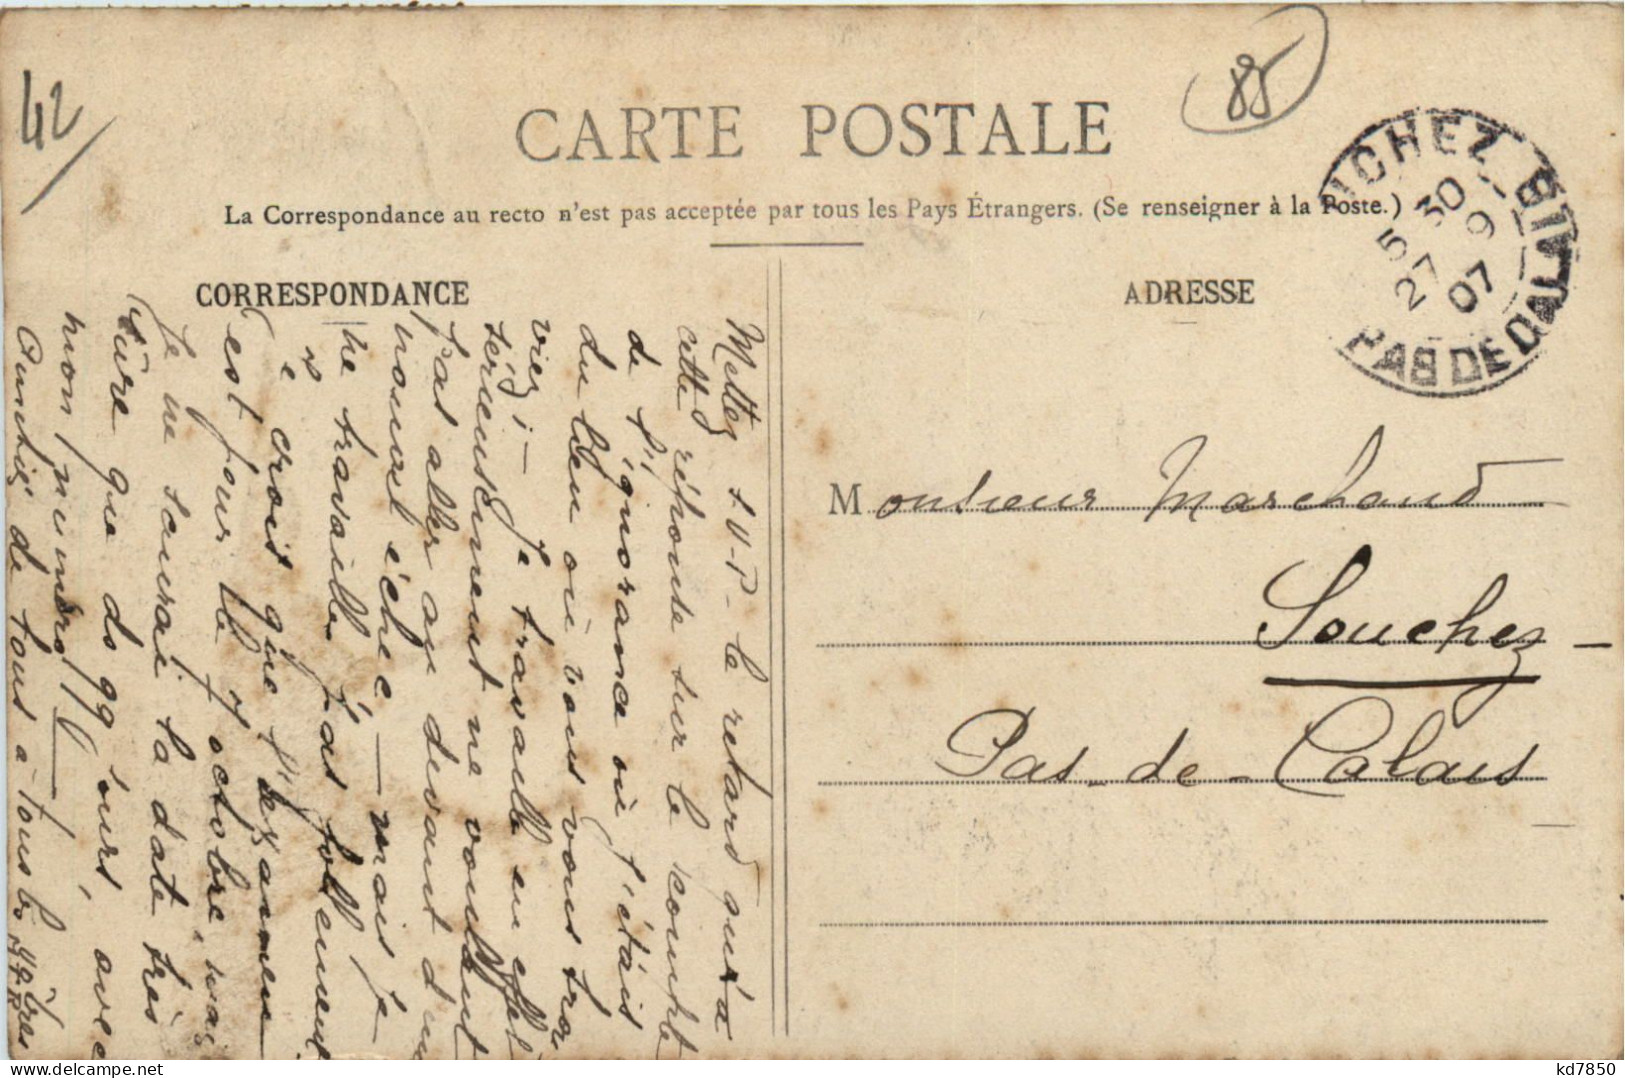 42
85
CARTE POSTALE
La Correspondance au recto n'est pas acceptée par tous les Pays Étrangers. (Se renseigner à la Poste.)
CORRESPONDANCE
ADRESSE
UCHEZ
5 30
27 9
07
PAS DE CALAIS
Monsieur Marchand
Souchez
Pas-de-Calais
Mettez S.V.P. le retard qu'a
cette réponse sur le compte
de l'ignorance où j'étais
du lieu où vous vous trou
viez; — Je travaille en effet
sérieusement ne voulant
pas aller au devant d'un
nouvel échec — mais je
ne travaille pas follement
Je crois que l'examen
est pour le 7 octobre, mais
je ne saurai la date très
sûre que ds qq jours, avec
mon numéro
Amitiés de tous à tous
kd7850